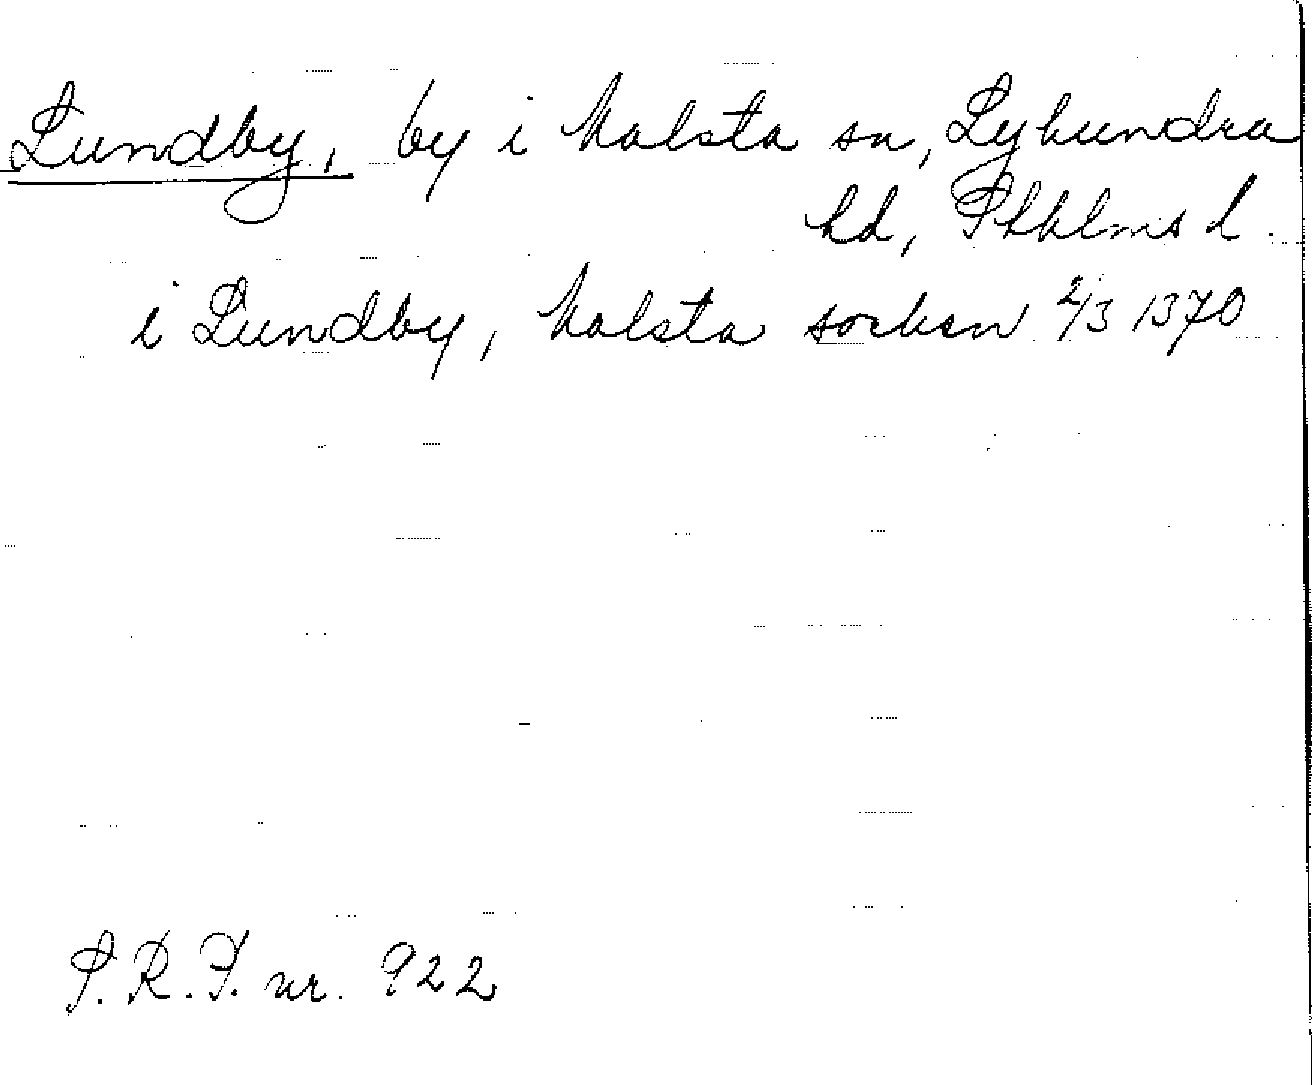 Lundby, by i Malsta sn, Lyhundra
hd, Sthlms l.
i Lundby, Malsta socken 2/3 1370
S.R.P. nr. 922